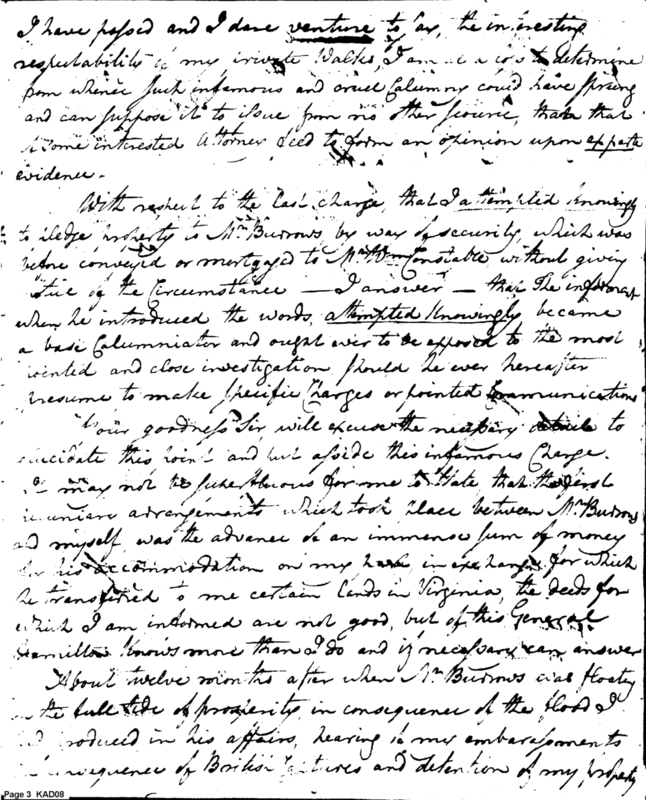 I have passed and I dare venture to say, the interesting
respectability of my private Walks, I am at a loss to determine
from whence such infamous and cruel Calumny could have sprung
and can suppose it to issue from no other source, than that
some interested Attorney feed to form an opinion upon exparte
evidence.
With respect to the last charge, that I attempted knowingly
to pledge property to Mr. Burrows by way of security, which was
before conveyed or mortgaged to Mr. Wm Constable without giving
notice of the Circumstance — I answer — that the informant
when he introduced the words, attempted Knowingly became
a base Calumniator and ought ever to be exposed to the most
pointed and close investigation should he ever hereafter
presume to make specific Charges or pointed Communications
Your goodness Sir, will excuse the necessary details to
elucidate this point and put asside this infamous Charge.
It may not be superfluous for me to state that the first
pecuniary arrangements which took place between Mr. Burrows
and myself, was the advance of an immense sum of money
for his accommodation on my part, in exchange for which
he transferred to me certain lands in Virginia, the deeds for
which I am informed are not good, but of this General
Hamilton knows more than I do and if necessary can answer
About twelve months after when Mr. Burrows was floating
on the full tide of prosperity in consequence of the flood I
had produced in his affairs, hearing of my embarassments
in consequence of British Captures and detention of my property
Page 3 KAD08